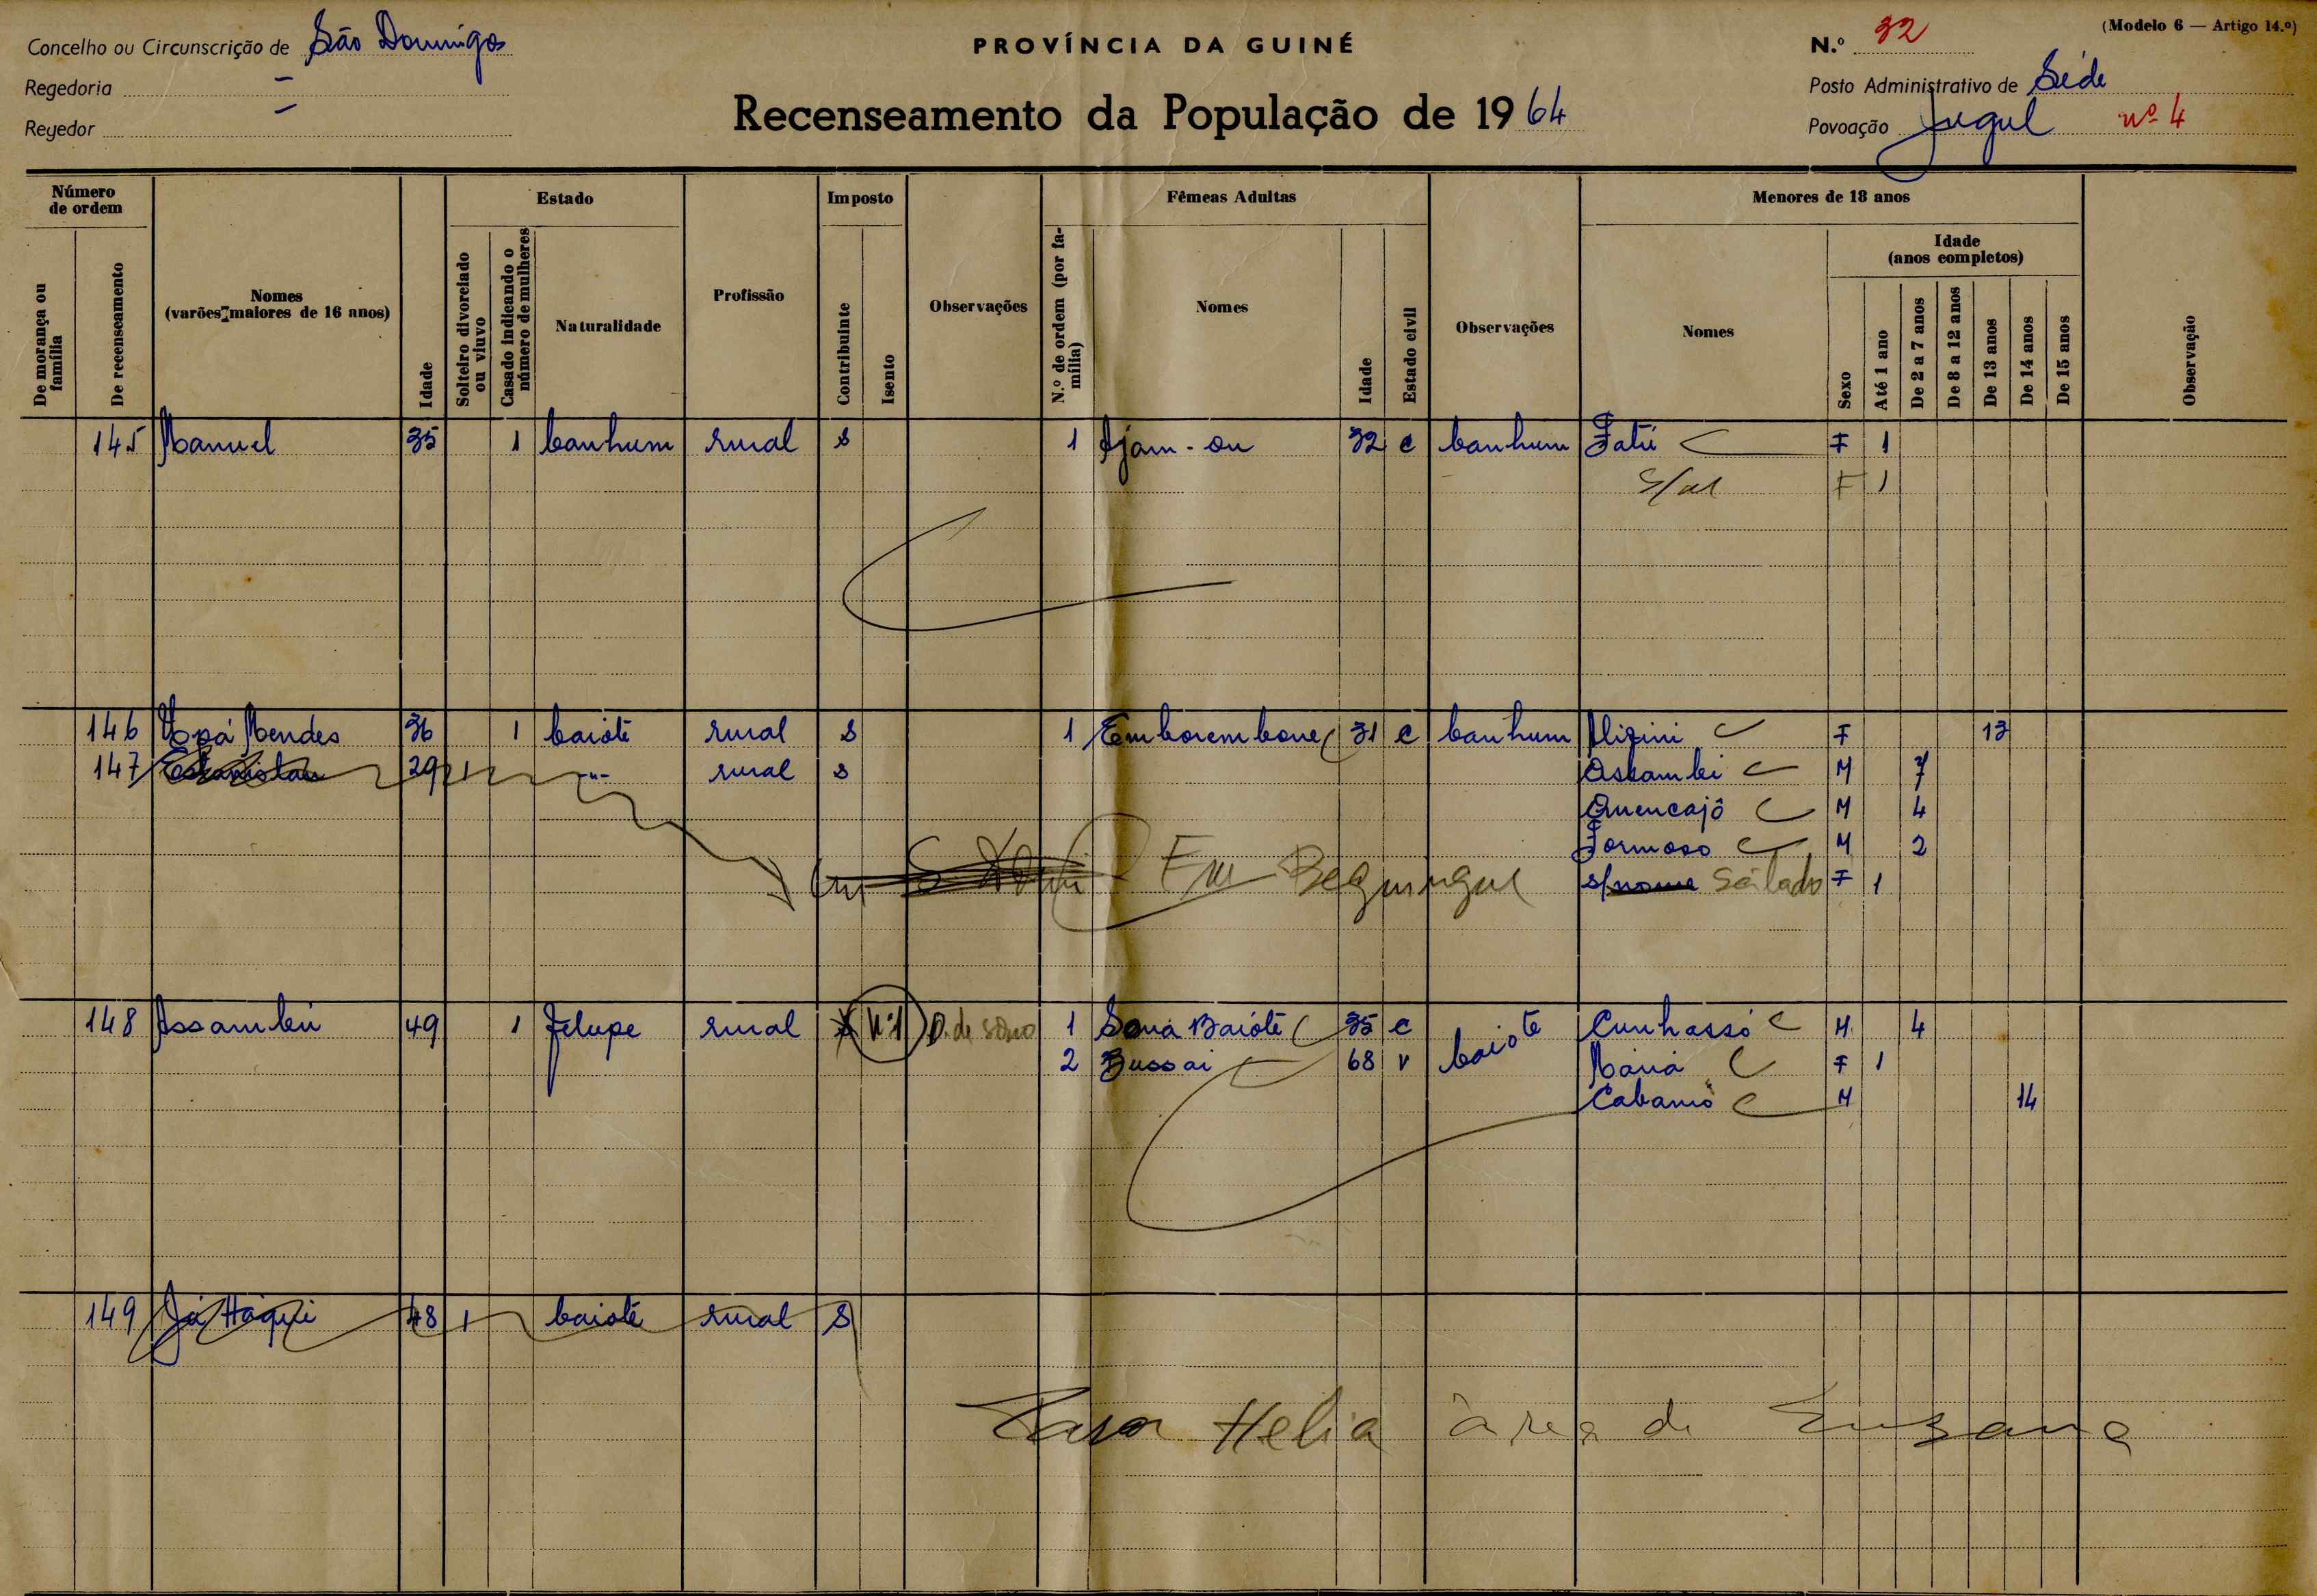 (Modelo 6 — Artigo 14.º)
Concelho ou Circunscrição de São Domingos
PROVÍNCIA DA GUINÉ
N.º 32
Regedoria —
Posto Administrativo de Séde
Regedor —
Recenseamento da População de 1964
Povoação Jugul nº 4
Número de ordem
Estado
Imposto
Fêmeas Adultas
Menores de 18 anos
De morança ou família
De recenseamento
Nomes (varões maiores de 16 anos)
Idade
Solteiro divorciado ou viuvo
Casado indicando o número de mulheres
Naturalidade
Profissão
Contribuinte
Isento
Observações
N.º de ordem (por família)
Nomes
Idade
Estado civil
Observações
Nomes
Sexo
Idade (anos completos)
Até 1 ano
De 2 a 7 anos
De 8 a 12 anos
De 13 anos
De 14 anos
De 15 anos
Observação
145 Manuel 35 1 banhum rural s 1 Ajam-ou 32 c banhum Fatú F 1
F 1
146 Mendes 36 1 baioté rural s 1 Emborembone 31 c banhum Alizini F 13
147 29 1 -"- rural s Assambei M 7
Quencajô M 4
Formoso M 2
Em s/nome F 1
148 Assambeu 49 1 Felupe rural s Nº1 D. de sono 1 Sona Baióte 35 c baiote Cunhassó M 4
2 Bussai 68 v Maria F 1
Cabamo M 14
149 Já Háqui 48 1 baioté rural s
Para Helia área de Suzana